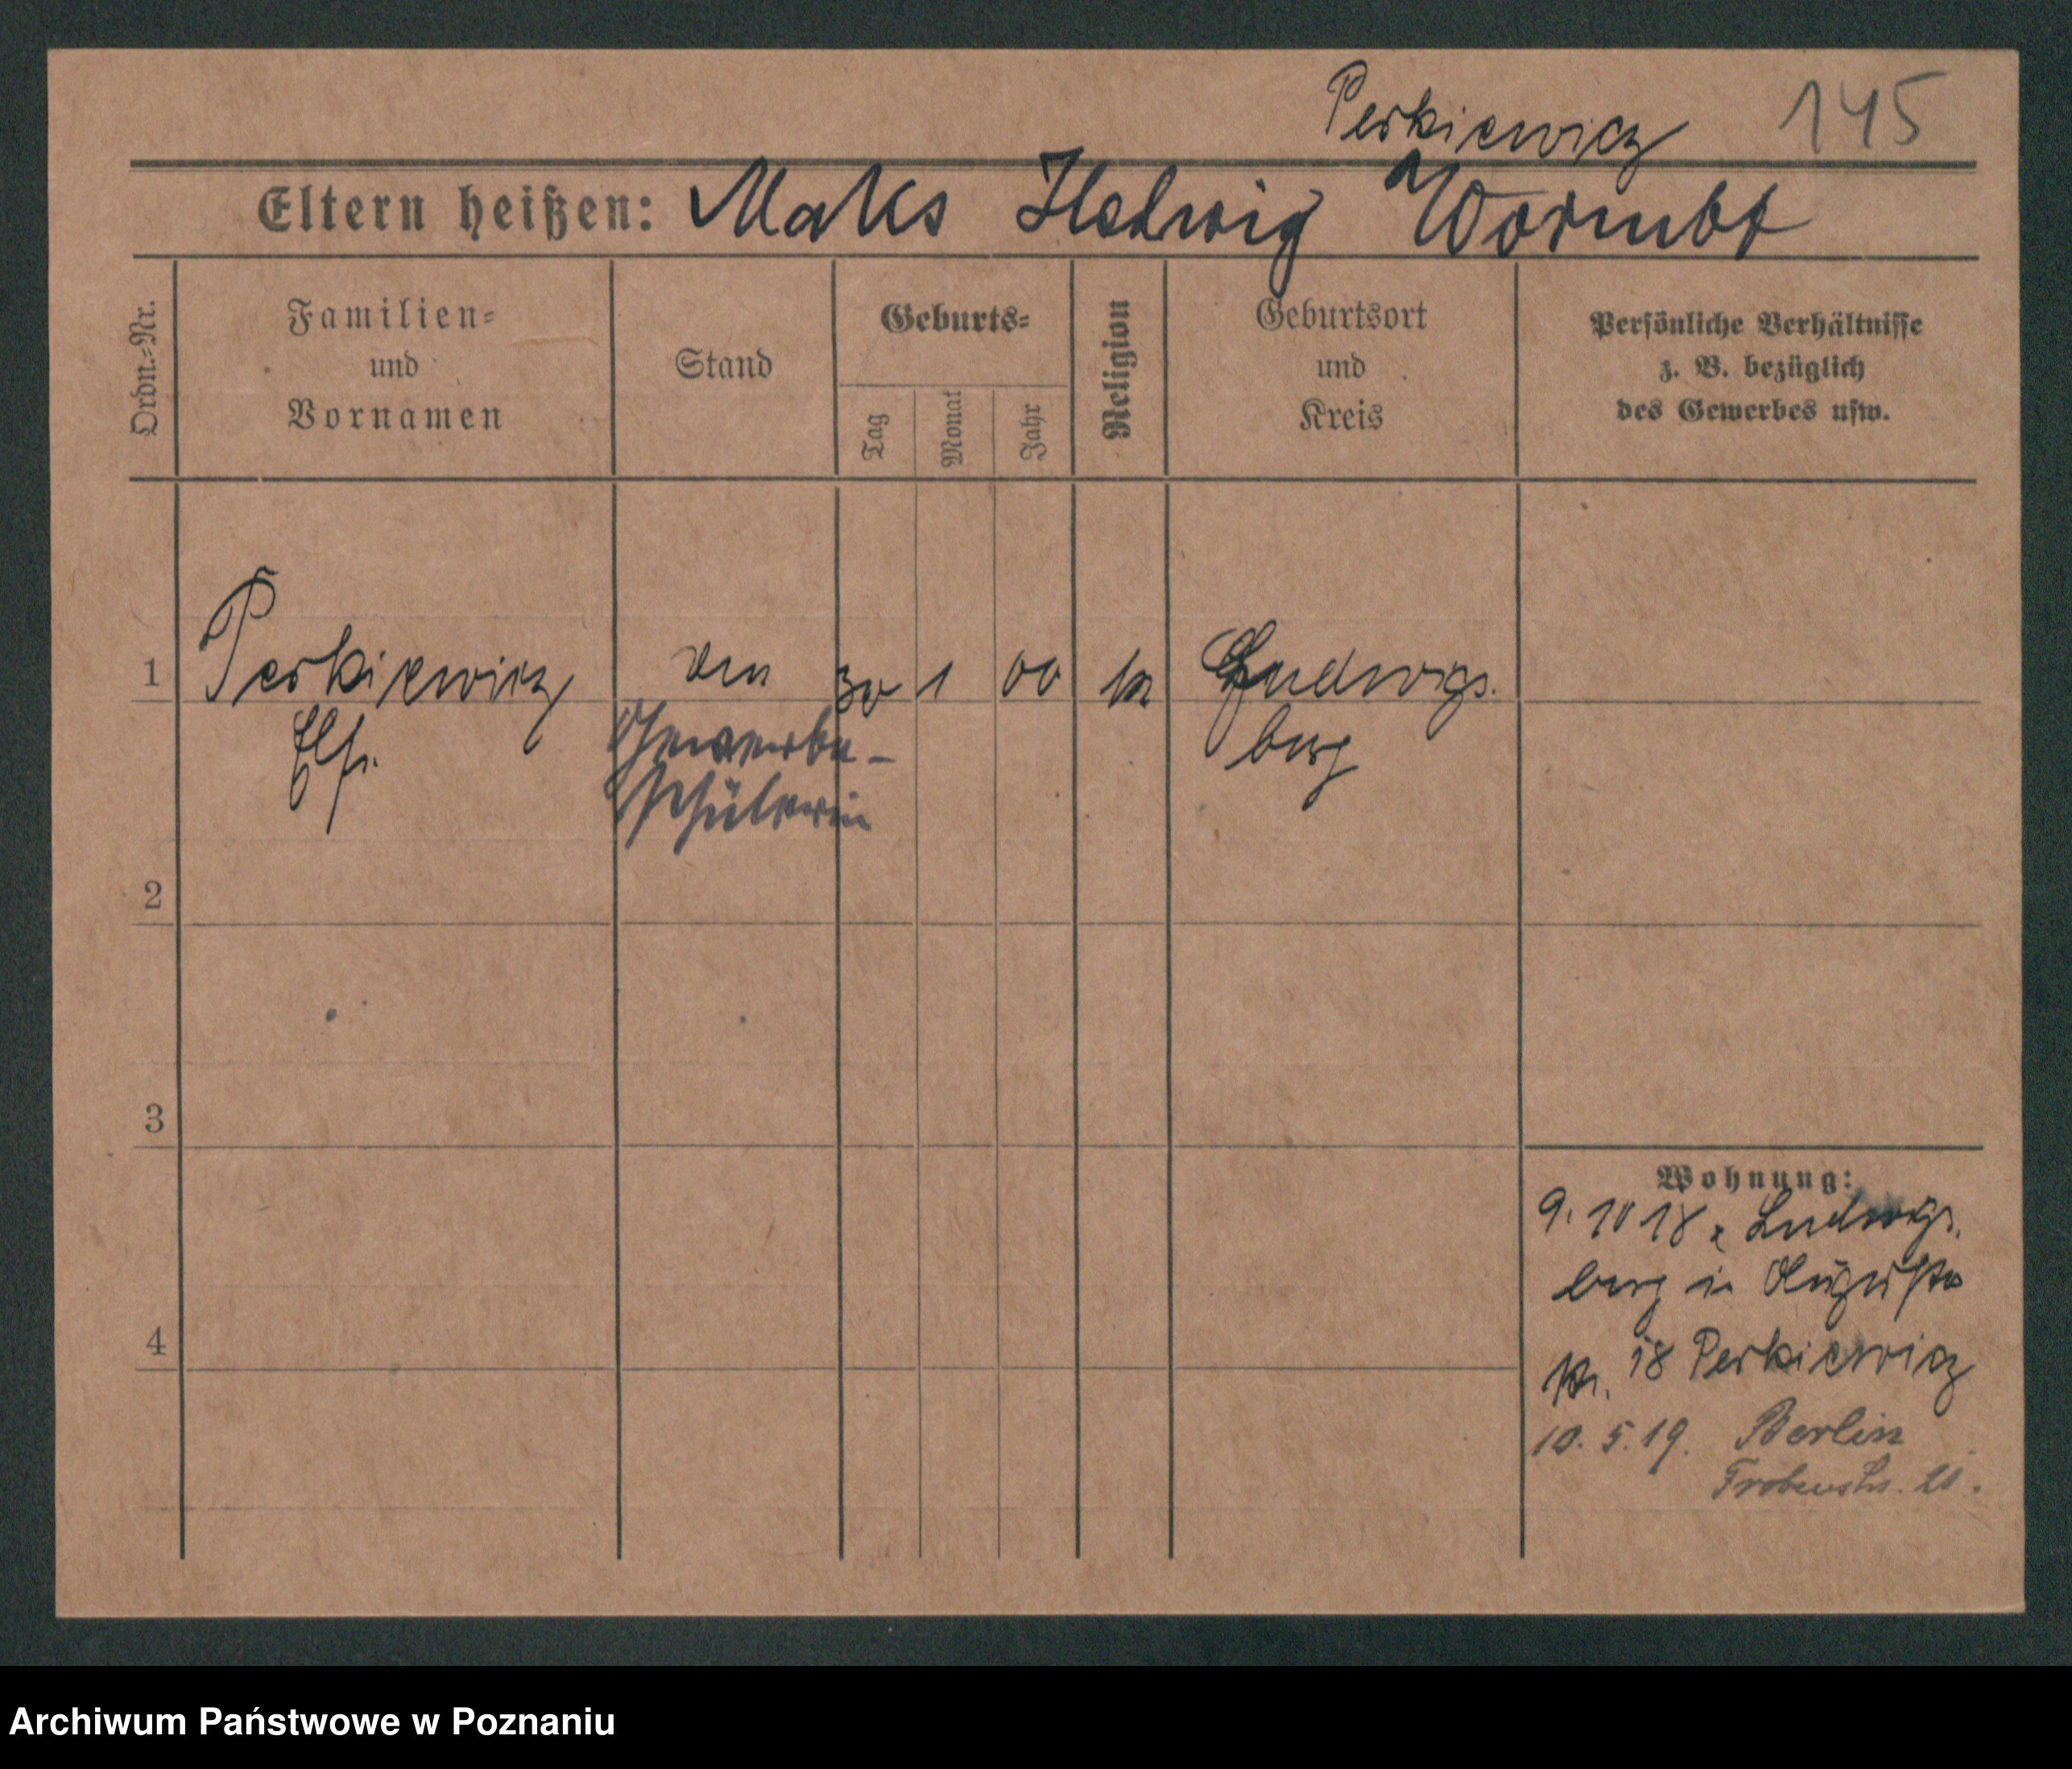 Perkiewicz 145
Eltern heißen: Maks Hedwig Wormbt
Ordn.-Nr.
Familien-
und
Vornamen
Stand
Geburts-
Tag
Monat
Jahr
Religion
Geburtsort
und
Kreis
Persönliche Verhältnisse
z. B. bezüglich
des Gewerbes usw.
1 Perkiewicz 30 1 00 k Ludwigs.
berg
Gewerbe-
schülerin
2
3
4
Wohnung:
9. 10 18 Ludwigs.
berg in Augusta
18 Perkiewicz
10. 5. 19. Berlin
Frobenstr.
Archiwum Państwowe w Poznaniu